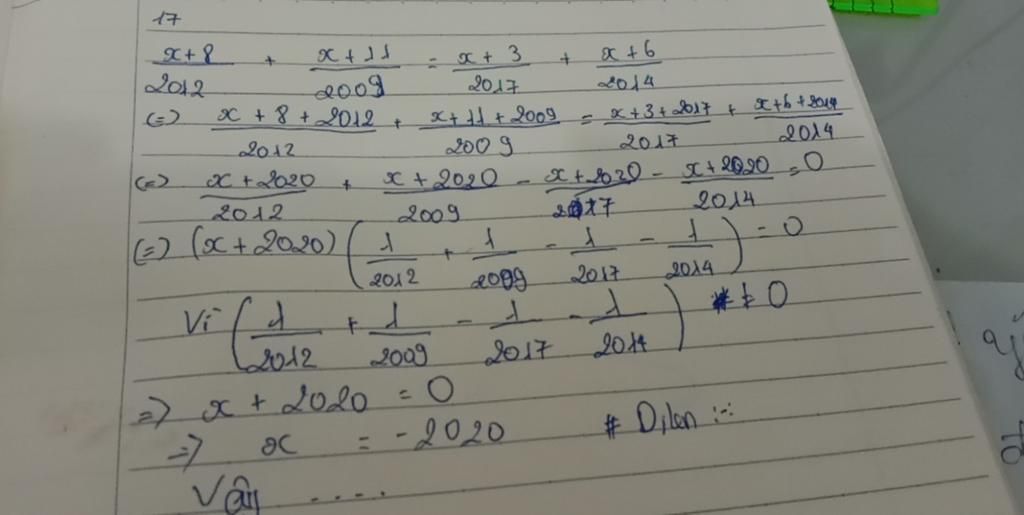 17
x+8/2012 + x+11/2009 = x+3/2017 + x+6/2014
(=) x+8+2012/2012 + x+11+2009/2009 = x+3+2017/2017 + x+6+2014/2014
(=) x+2020/2012 + x+2020/2009 - x+2020/2017 - x+2020/2014 = 0
(=) (x+2020) (1/2012 + 1/2009 - 1/2017 - 1/2014) = 0
Vì (1/2012 + 1/2009 - 1/2017 - 1/2014) ≠ 0
=> x + 2020 = 0
=> x = -2020 # D,lan :-:
Vậy ....